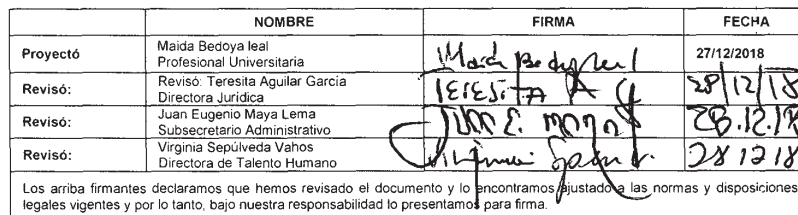 NOMBRE FIRMA FECHA
Proyectó Maida Bedoya leal
Profesional Universitaria Maida Bedoya leal 27/12/2018
Revisó: Revisó: Teresita Aguilar García
Directora Jurídica TERESITA A G 28/12/18
Revisó: Juan Eugenio Maya Lema
Subsecretario Administrativo 28.12.18
Revisó: Virginia Sepúlveda Vahos
Directora de Talento Humano 28 12 18
Los arriba firmantes declaramos que hemos revisado el documento y lo encontramos ajustado a las normas y disposiciones
legales vigentes y por lo tanto, bajo nuestra responsabilidad lo presentamos para firma.